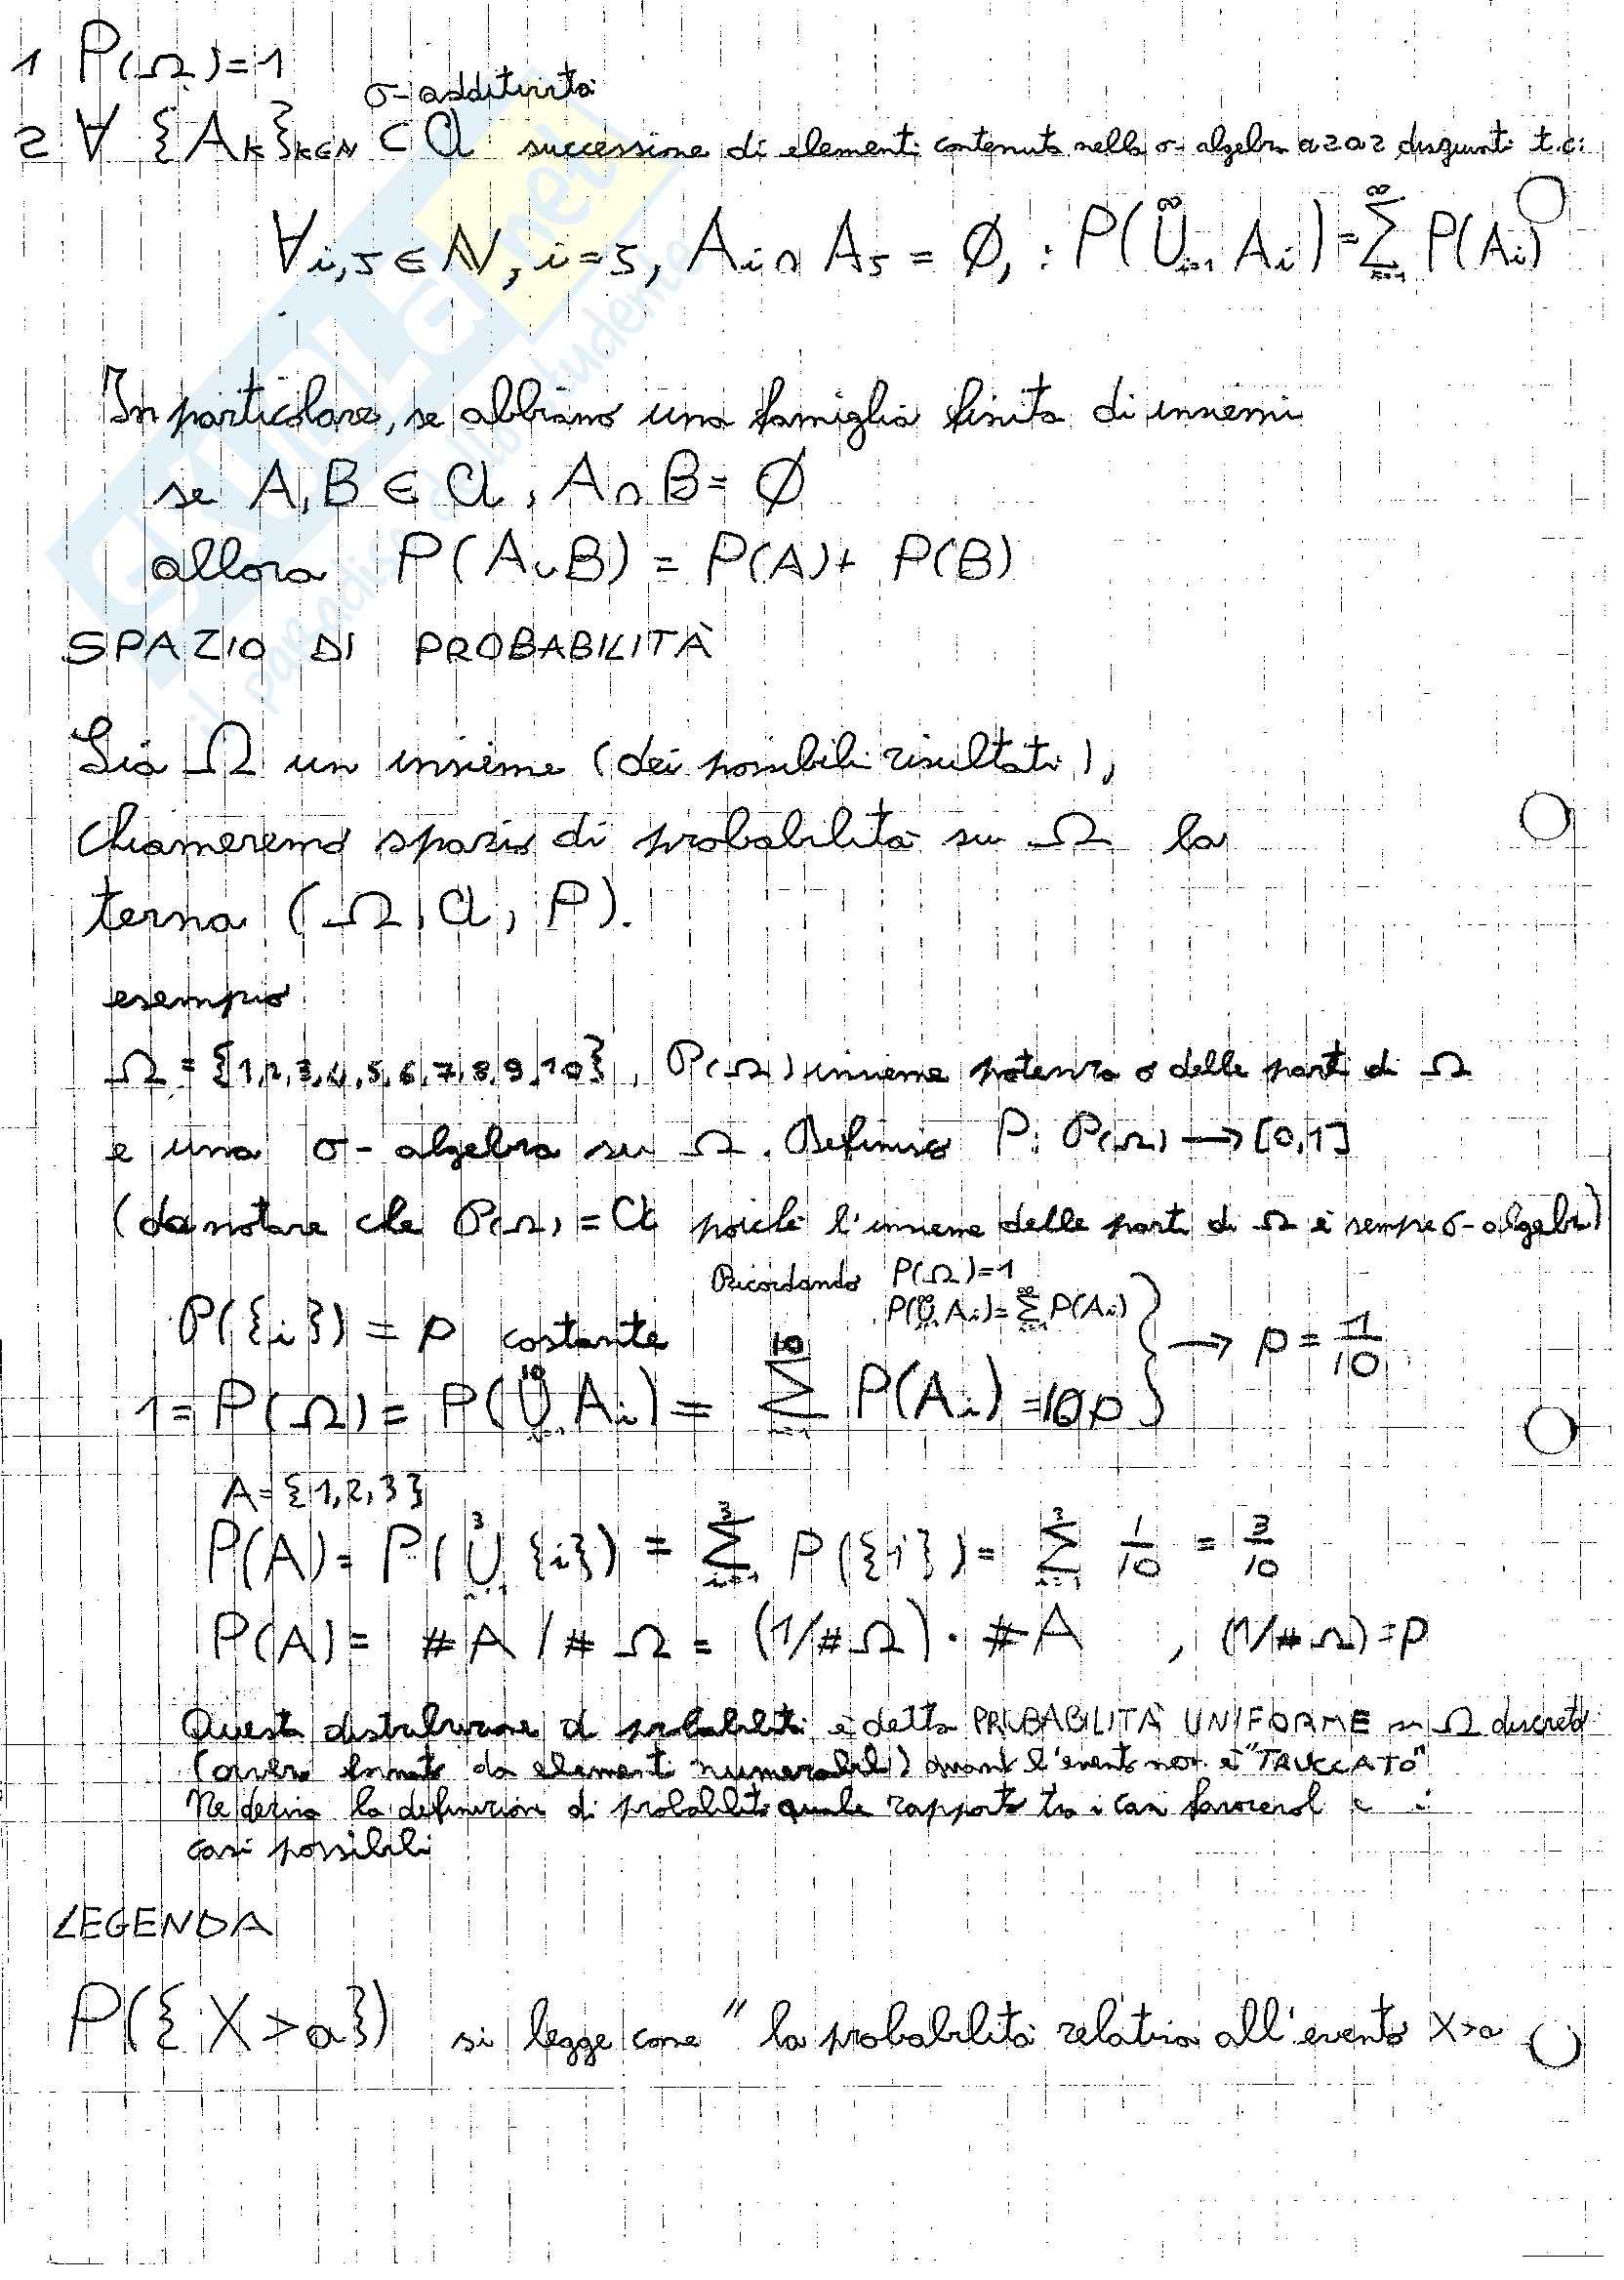 1 P(Ω)=1
σ-additività
2 ∀ {A_k}_{k∈N} ⊂ 𝒜 successione di elementi contenuta nella σ-algebra a 2 a 2 disgiunti t.c:
∀i,j ∈ N, i=j, A_i ∩ A_j = ∅, : P(⋃_{i=1}^∞ A_i) = ∑_{i=1}^∞ P(A_i)
In particolare, se abbiamo una famiglia finita di insiemi
se A, B ∈ 𝒜, A ∩ B = ∅
allora P(A ∪ B) = P(A) + P(B)
SPAZIO DI PROBABILITÀ
Sia Ω un insieme (dei possibili risultati),
chiameremo spazio di probabilità su Ω la
terna (Ω, 𝒜, P).
esempio
Ω = {1,2,3,4,5,6,7,8,9,10}, 𝒫(Ω) insieme potenza o delle parti di Ω
e una σ-algebra su Ω. Definisco P: 𝒫(Ω) → [0,1]
(da notare che 𝒫(Ω) = 𝒜 poiché l'insieme delle parti di Ω è sempre σ-algebra)
Ricordando P(Ω)=1
P(⋃_{i=1}^∞ A_i) = ∑_{i=1}^∞ P(A_i)
P({i}) = p costante
1 = P(Ω) = P(⋃_{i=1}^{10} A_i) = ∑_{i=1}^{10} P(A_i) = 10p } → p = 1/10
A = {1,2,3}
P(A) = P(⋃_{i=1}^3 {i}) = ∑_{i=1}^3 P({i}) = ∑_{i=1}^3 1/10 = 3/10
P(A) = #A / #Ω = (1/#Ω) · #A , (1/#Ω) = p
Questa distribuzione di probabilità è detta PROBABILITÀ UNIFORME su Ω discreto
(ovvero formato da elementi numerabili) l'evento non è "TRUCCATO"
Ne deriva la definizione di probabilità quale rapporto tra i casi favorevoli e i
casi possibili
LEGENDA
P({X>a}) si legge come "la probabilità relativa all'evento X>a